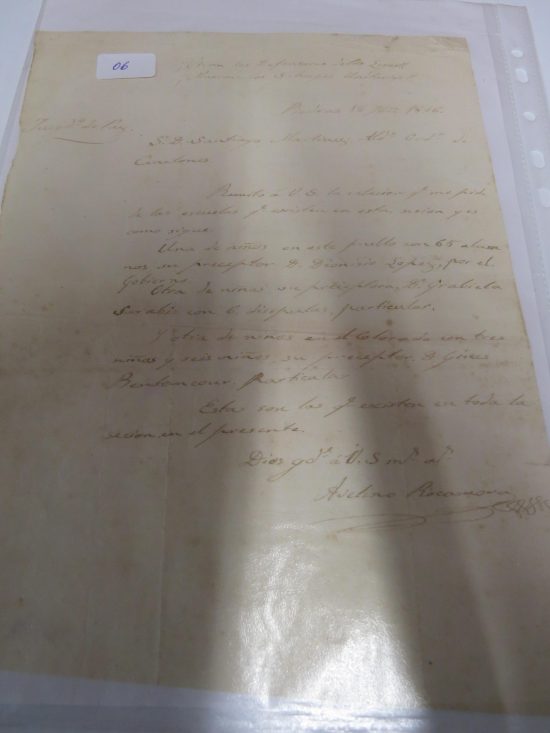 06
¡Vivan los Defensores de las Leyes!
¡Mueran los Salvajes Unitarios!
Juzgdo. de Paz
1846
S. D. Santiago Martinez Alde. Ordo. de
Canelones
Remito a V. S. la relacion qe. me pide
de las escuelas qe. existen en esta secion y es
como sigue
Una de niños en este pueblo con 65 alum
nos su preceptor D. Dionisio Lopez, por el
Gobierno
Otra de niñas su preseptora, Da. Grabiela
con 6 disipulas, particular.
Y otra de niños en el Colorado con tres
niñas y seis niños, su preceptor D. Gines
Bentancour, Particular
Estas son las qe. existen en toda la
secion en el presente.
Dios gde. á V. S. ms. as.
Avelino Rocamora